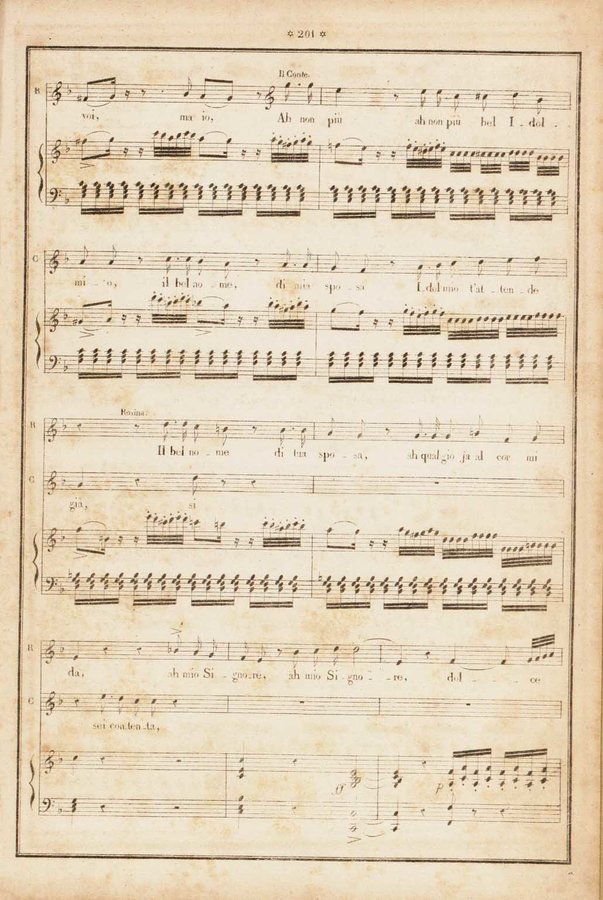 * 201 *
Il Conte.
R
voi, ma io, Ah non più ah non più bel I_dol_
C
mi_o, il bel no_me, di mia spo_sa I_dol mio t'at_ten_de
Rosina.
R
Il bel no_me di tua spo_sa, ah qual gio_ja al cor mi
C
già, si
R
da, ah mio Si_gno_re, ah mio Si_gno_re, dol_ce
C
sei con_ten_ta,
ff p